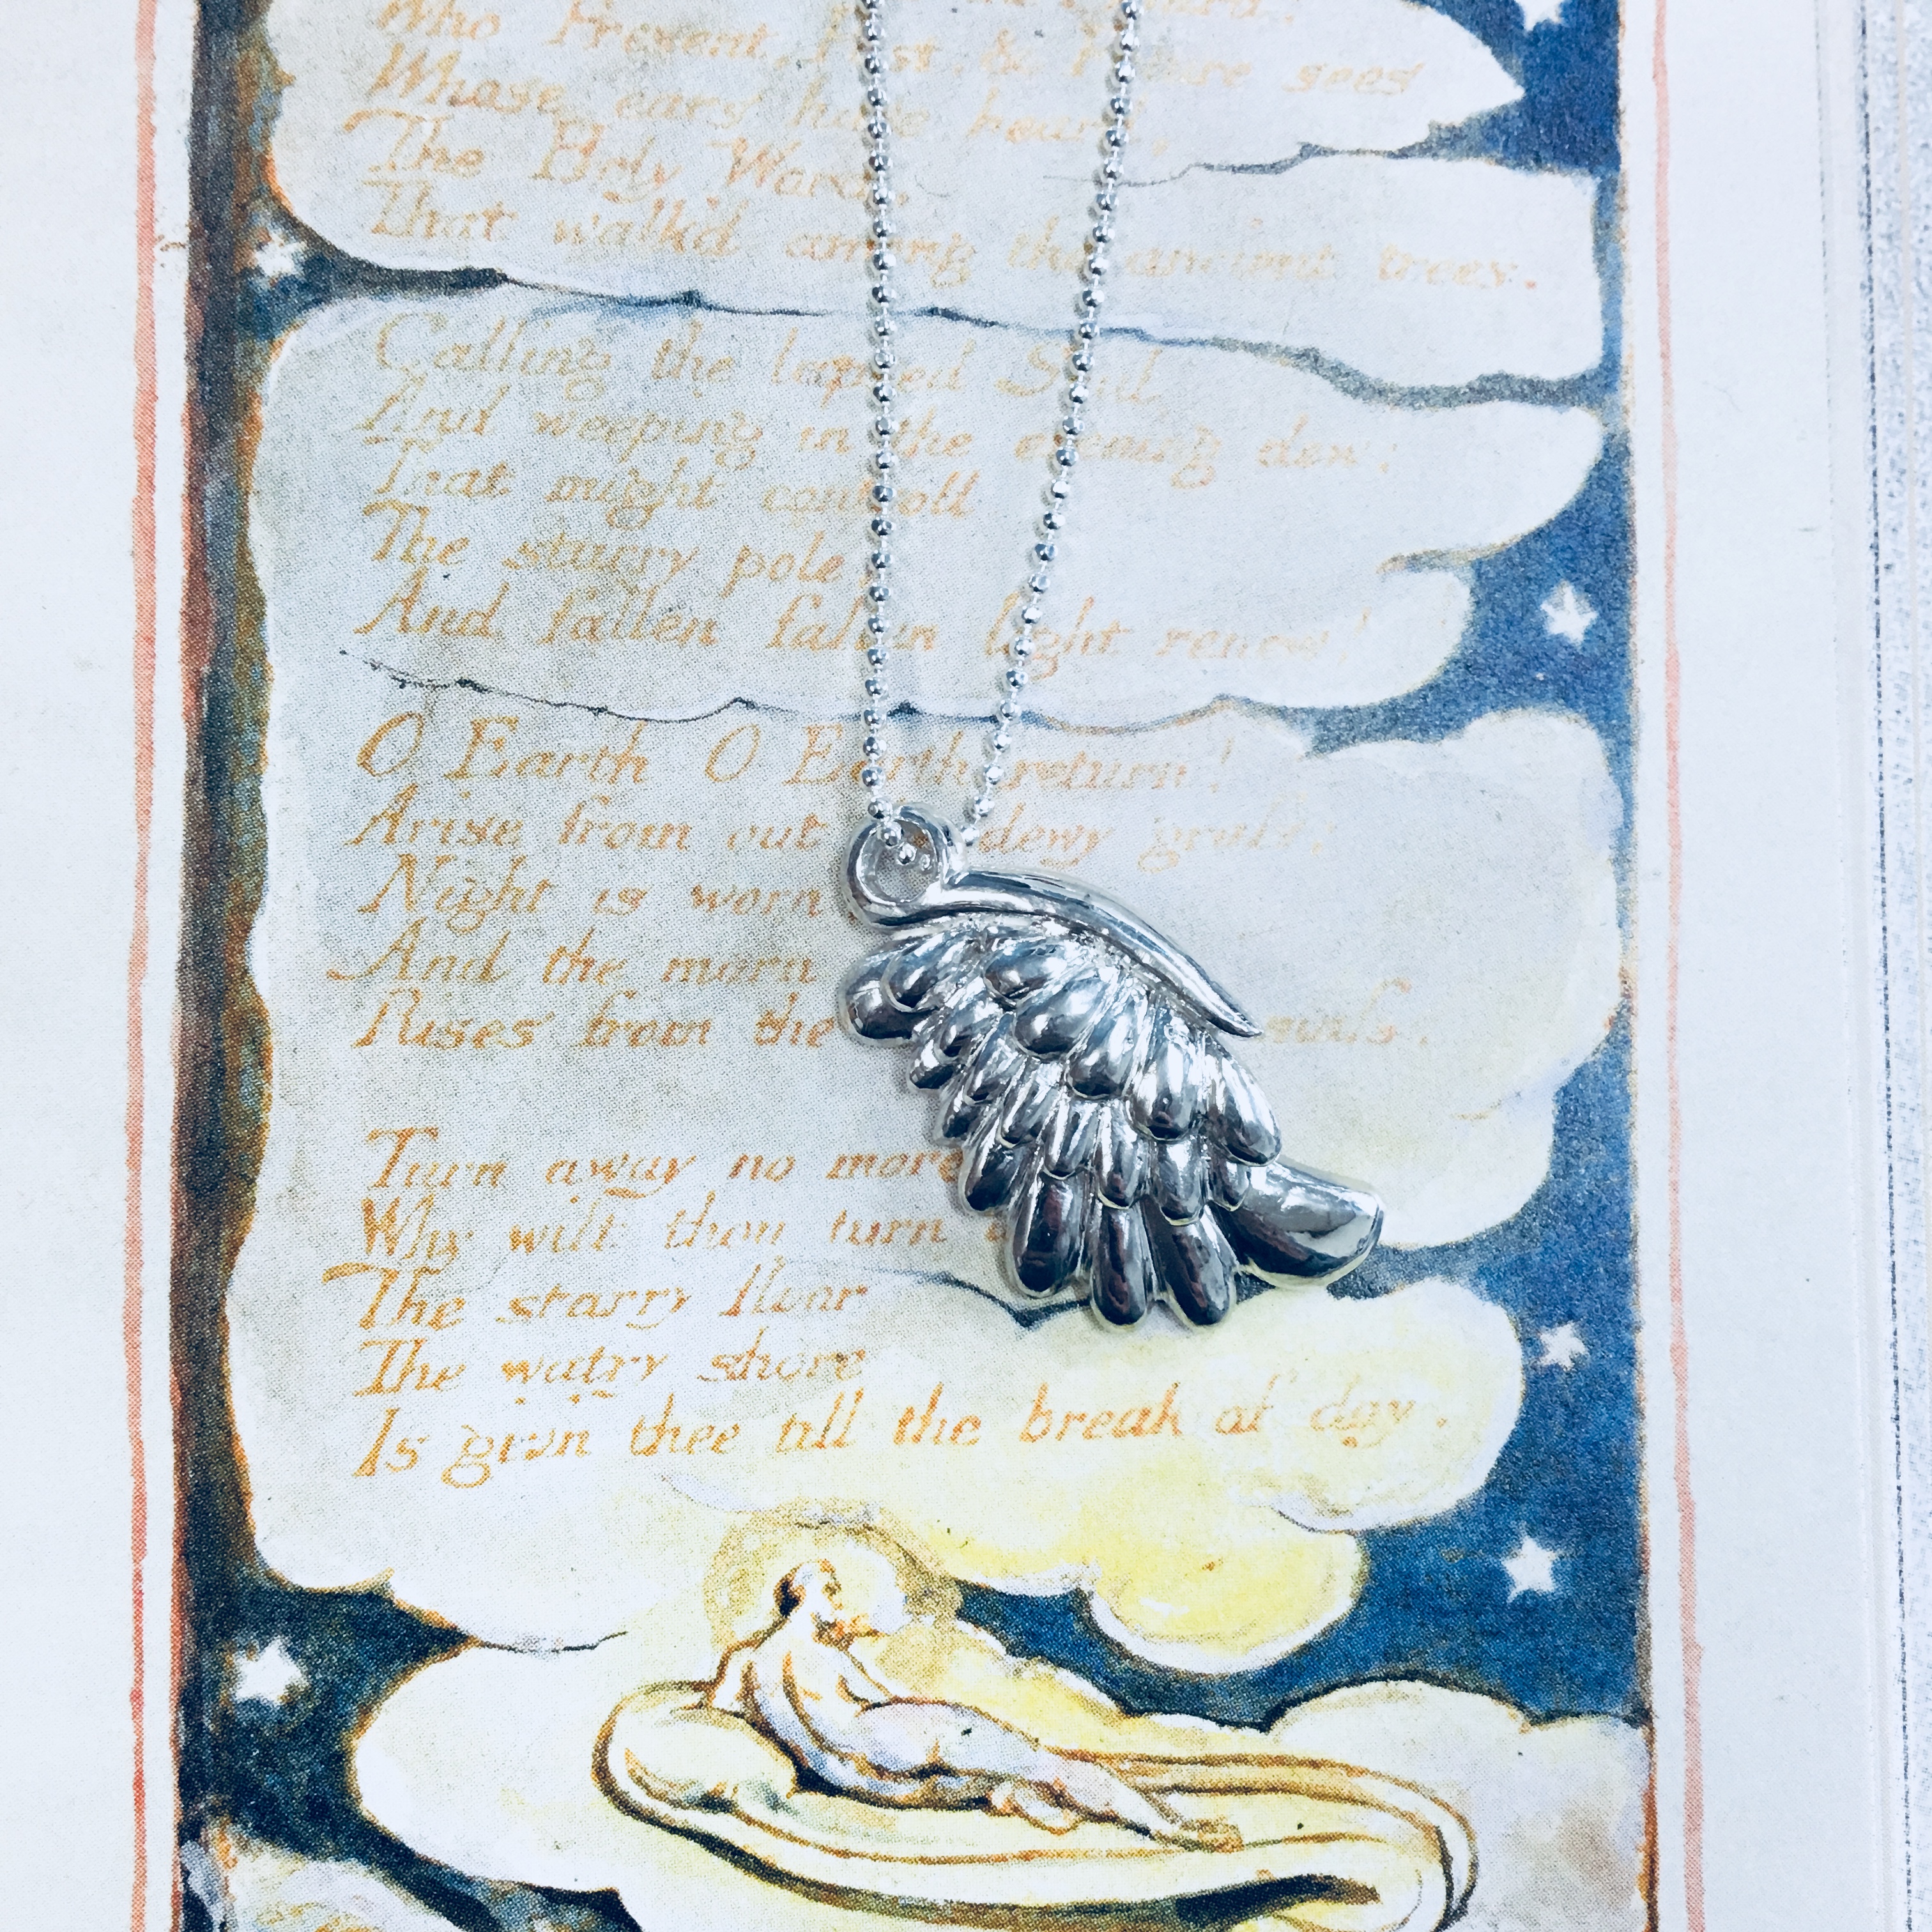 Who Present, Past, & Future sees
Whose ears have heard,
The Holy Word,
That walk'd among the ancient trees.
Calling the lapsed Soul
And weeping in the evening dew:
That might controll
The starry pole,
And fallen fallen light renew!
O Earth O Earth return!
Arise from out dewy grass;
Night is worn
And the morn
Rises from the
Turn away no more
Why wilt thou turn
The starry floor
The watry shore
Is giv'n thee till the break of day.